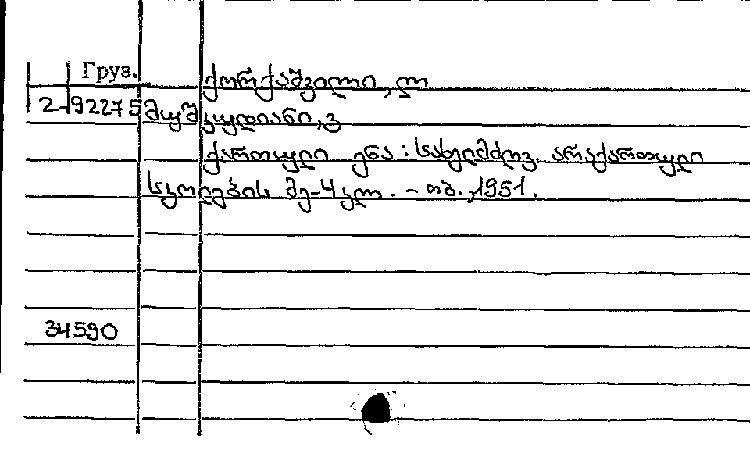 Груз.
ქორქაშვილი, ლ
2-92275 მუშკუდიანი, ვ
ქართული ენა: სახელმძღვ. არაქართული
სკოლების მე-4 კლ. - თბ., 1951.
34590